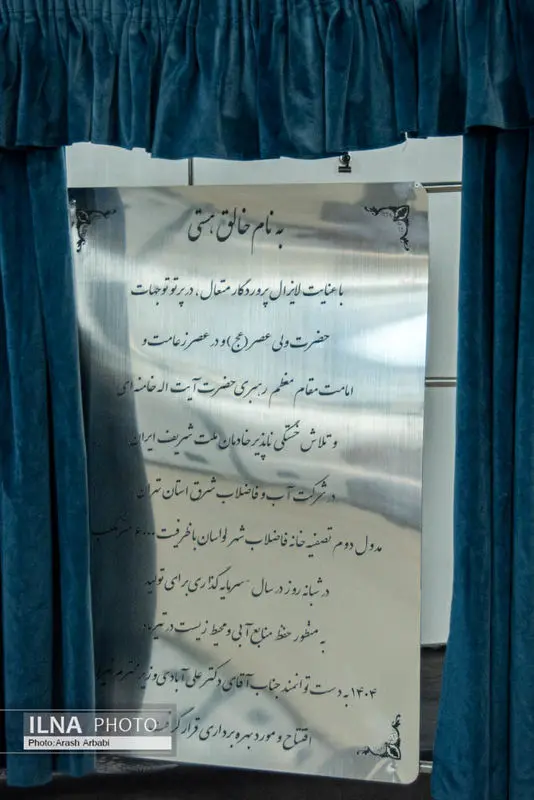 به نام خالق هستی
با عنایت لایزال پروردگار متعال، در پرتو توجهات
حضرت ولی عصر (عج) و در عصر زعامت و
امامت مقام معظم رهبری حضرت آیت اله خامنه ای
و تلاش خستگی ناپذیر خادمان ملت شریف ایران
در شرکت آب و فاضلاب شرق استان تهران
مدول دوم تصفیه خانه فاضلاب شهر لواسان با ظرفیت ۶۰۰۰ مترمکعب
در شبانه روز در سال "سرمایه گذاری برای تولید"
به منظور حفظ منابع آبی و محیط زیست در تیرماه
۱۴۰۴ به دست توانمند جناب آقای دکتر علی آبادی وزیر محترم نیرو
افتتاح و مورد بهره برداری قرار گرفت
ILNA PHOTO
Photo:Arash Arbabi